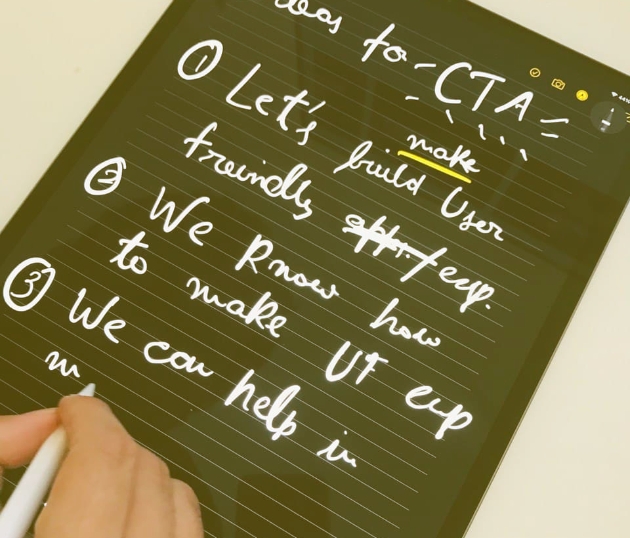 was to - CTA
① Let's build User
make
freindly app./exp.
② We know how
to make UI exp
③ We can help in
m